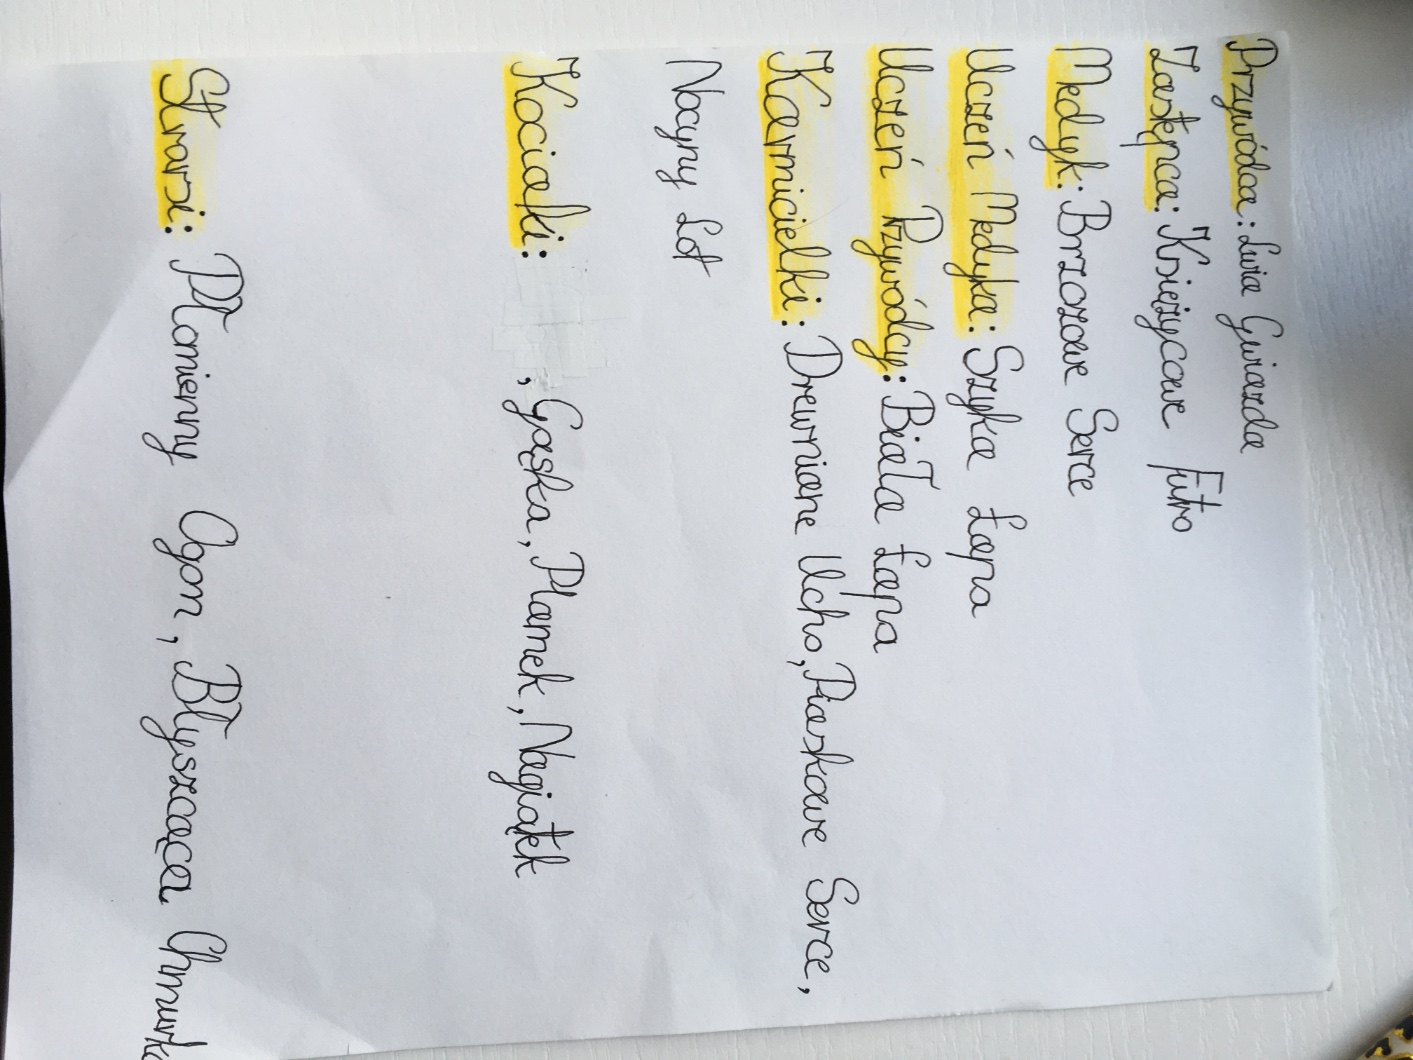 Przywódca: Lwia Gwiazda
Zastępca: Księżycowe Futro
Medyk: Brzozowe Serce
Uczeń Medyka: Szyka Łapa
Uczeń Przywódcy: Biała Łapa
Karmicielki: Drewniane Ucho, Piaskowe Serce,
Nocny Lot
Kociaki: , Gąska, Plamek, Nagiątek
Strarsi: Płomienny Ogon, Błyszcząca Chmurka